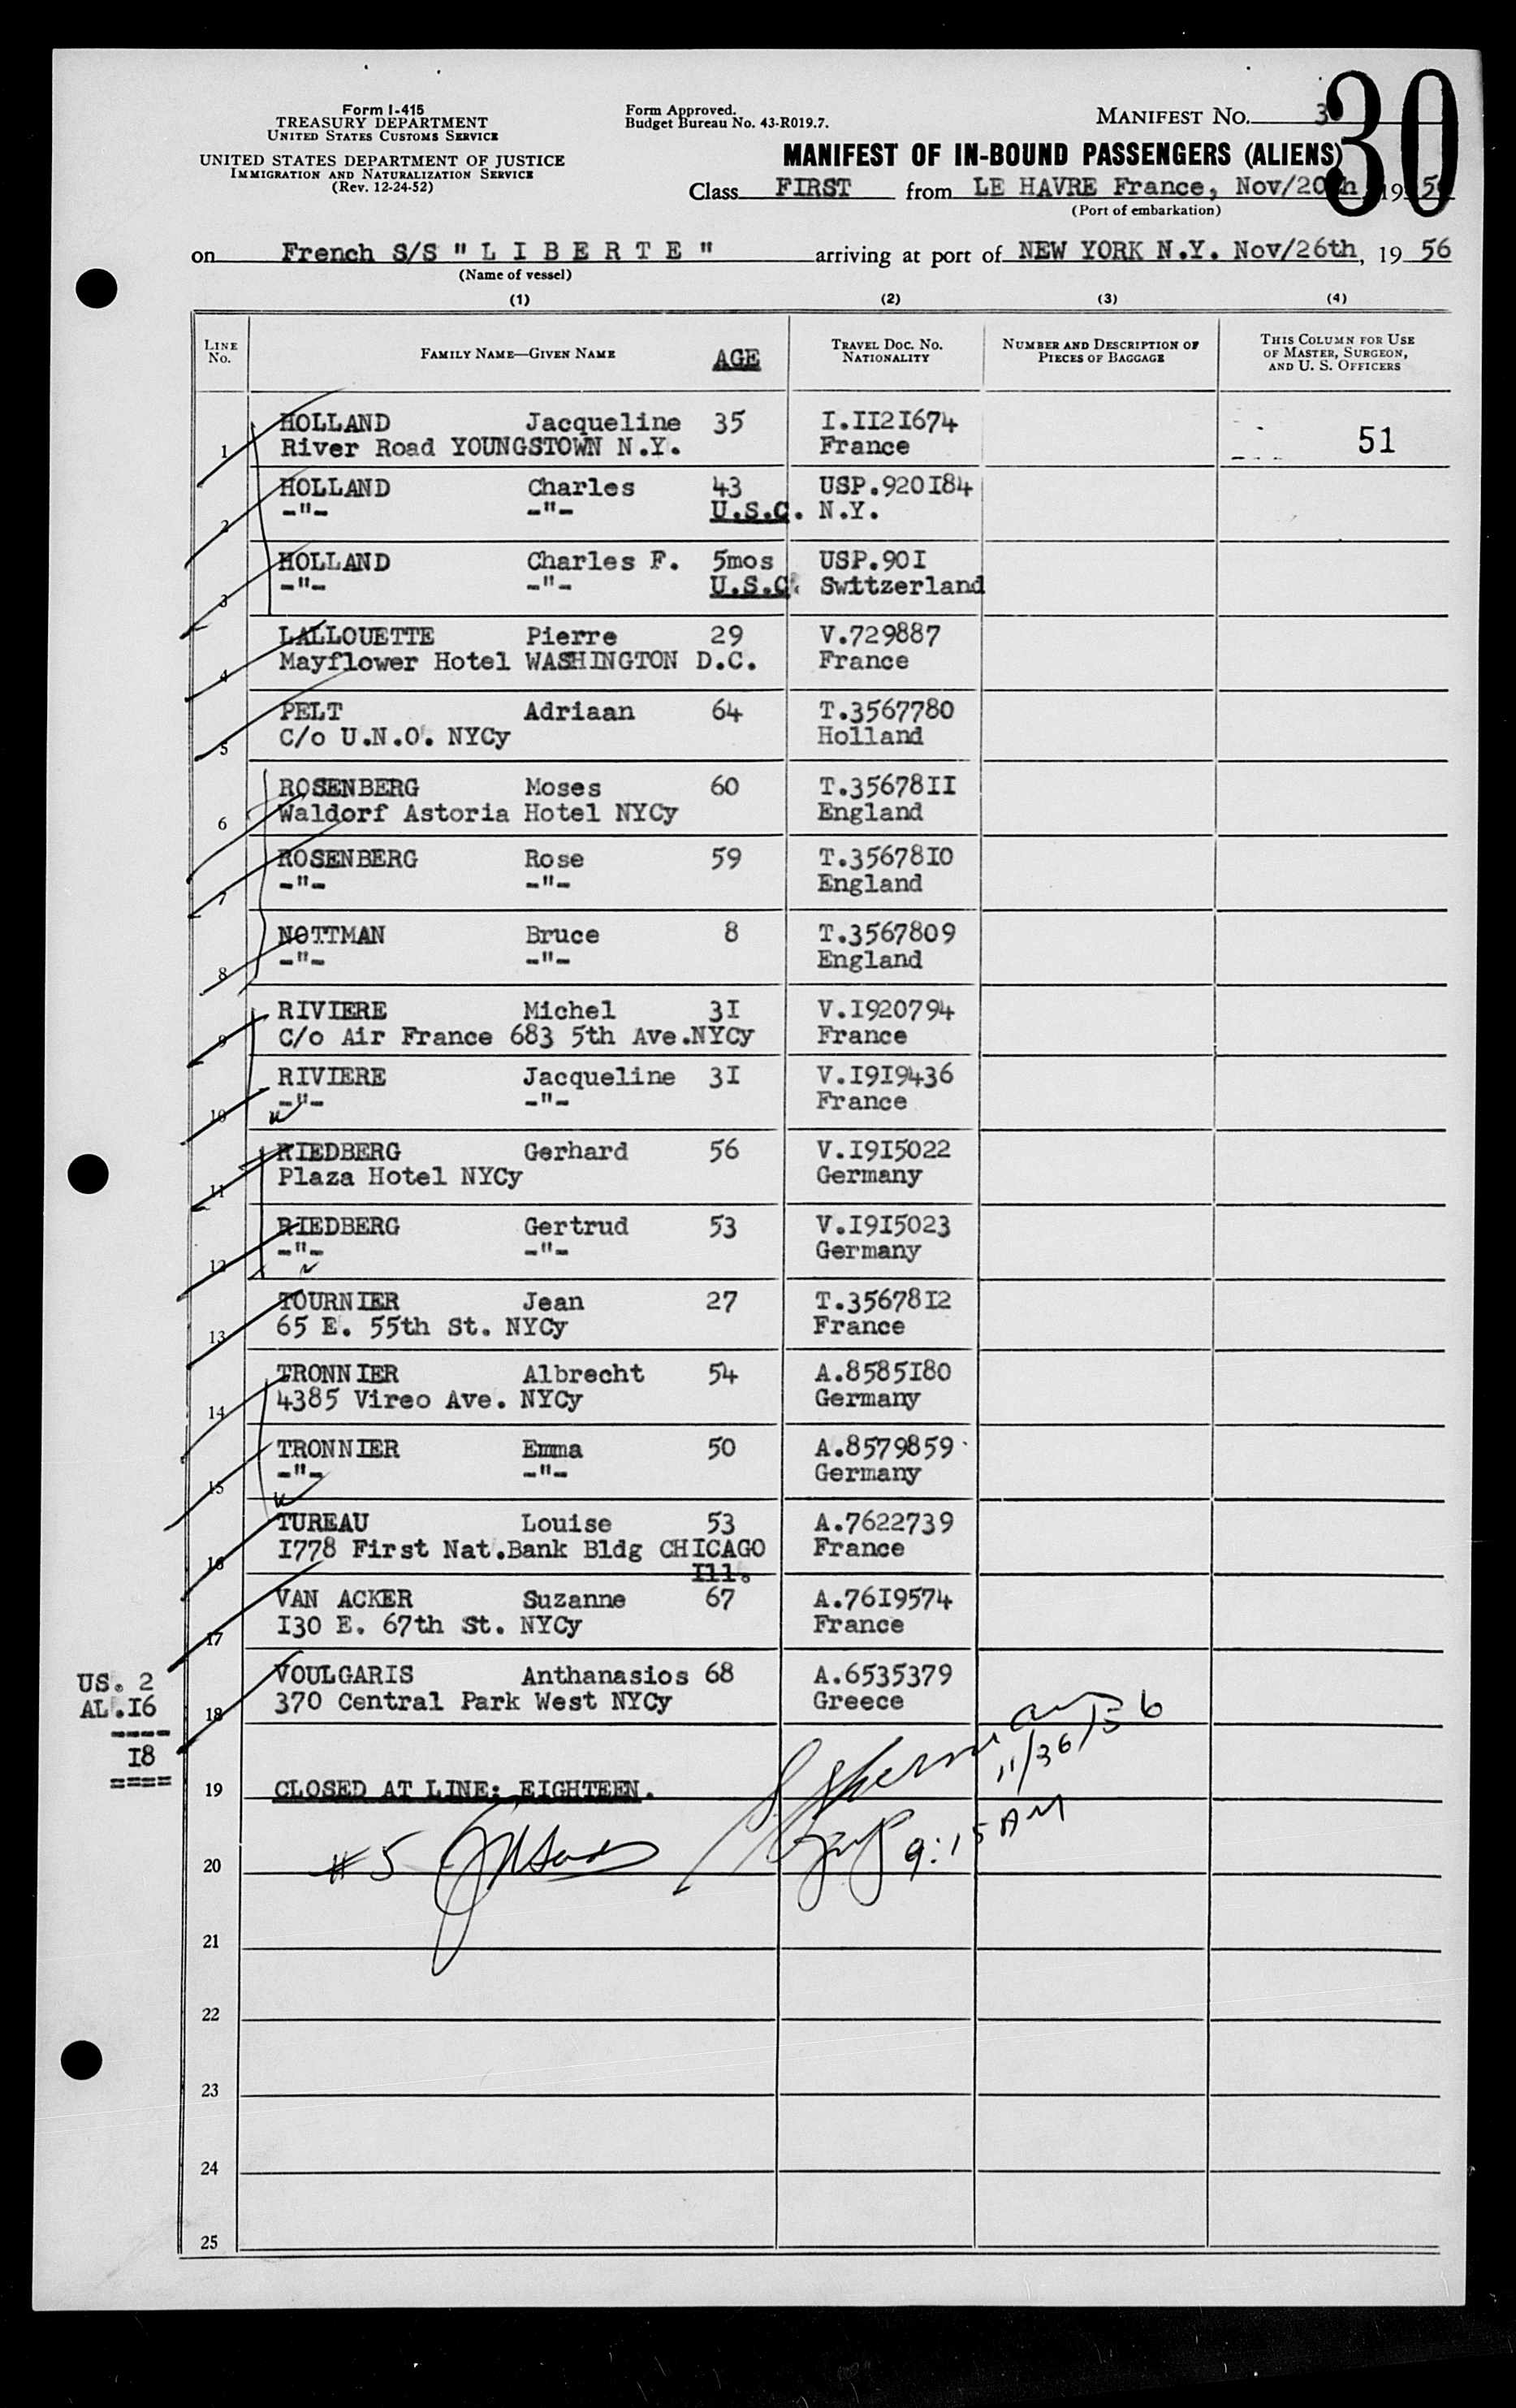 30
Form I-415
TREASURY DEPARTMENT
UNITED STATES CUSTOMS SERVICE
UNITED STATES DEPARTMENT OF JUSTICE
IMMIGRATION AND NATURALIZATION SERVICE
(Rev. 12-24-52)
Form Approved.
Budget Bureau No. 43-R019.7.
MANIFEST No. 3
MANIFEST OF IN-BOUND PASSENGERS (ALIENS)
Class FIRST from LE HAVRE France, Nov/20th 19 56
(Port of embarkation)
on French S/S " L I B E R T E " arriving at port of NEW YORK N.Y. Nov/26th, 19 56
(Name of vessel)
(1) (2) (3) (4)
LINE No. FAMILY NAME—GIVEN NAME AGE TRAVEL DOC. NO. NATIONALITY NUMBER AND DESCRIPTION OF PIECES OF BAGGAGE THIS COLUMN FOR USE OF MASTER, SURGEON, AND U. S. OFFICERS
1 HOLLAND Jacqueline 35 I.II2I674 51
River Road YOUNGSTOWN N.Y. France
2 HOLLAND Charles 43 USP.920I84
-"- -"- U.S.C. N.Y.
3 HOLLAND Charles F. 5mos USP.90I
-"- -"- U.S.C. Switzerland
4 LALLOUETTE Pierre 29 V.729887
Mayflower Hotel WASHINGTON D.C. France
5 PELT Adriaan 64 T.3567780
C/o U.N.O. NYCy Holland
6 ROSENBERG Moses 60 T.35678II
Waldorf Astoria Hotel NYCy England
7 ROSENBERG Rose 59 T.35678I0
-"- -"- England
8 NOTTMAN Bruce 8 T.3567809
-"- -"- England
9 RIVIERE Michel 3I V.I920794
C/o Air France 683 5th Ave.NYCy France
10 RIVIERE Jacqueline 3I V.I9I9436
-"- -"- France
11 RIEDBERG Gerhard 56 V.I9I5022
Plaza Hotel NYCy Germany
12 RIEDBERG Gertrud 53 V.I9I5023
-"- -"- Germany
13 TOURNIER Jean 27 T.35678I2
65 E. 55th St. NYCy France
14 TRONNIER Albrecht 54 A.8585I80
4385 Vireo Ave. NYCy Germany
15 TRONNIER Emma 50 A.8579859
-"- -"- Germany
16 TUREAU Louise 53 A.7622739
I778 First Nat.Bank Bldg CHICAGO France
Ill.
17 VAN ACKER Suzanne 67 A.76I9574
I30 E. 67th St. NYCy France
18 VOULGARIS Anthanasios 68 A.6535379
370 Central Park West NYCy Greece
US. 2
AL.I6
----
I8
====
19 CLOSED AT LINE: EIGHTEEN.
11/36/56
20 #5 9:15 AM
21
22
23
24
25